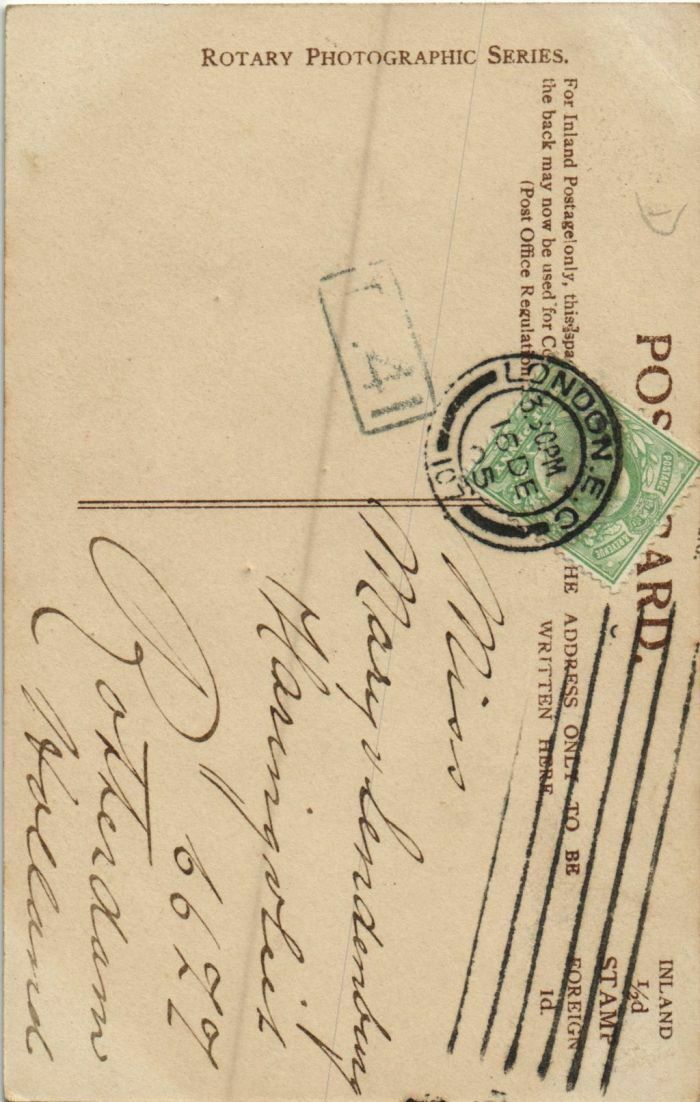 ROTARY PHOTOGRAPHIC SERIES.
POS CARD.
For Inland Postage only, this spa
the back may now be used for Co
(Post Office Regulation
THE ADDRESS ONLY TO BE
WRITTEN HERE
INLAND
½d
STAMP
FOREIGN
1d.
LONDON. E.C
3.30PM
15 DE
05
101
POSTAGE
& REVENUE
T.4
Miss
Mary v Lendenburg
Haringvliet
66
Rotterdam
Holland